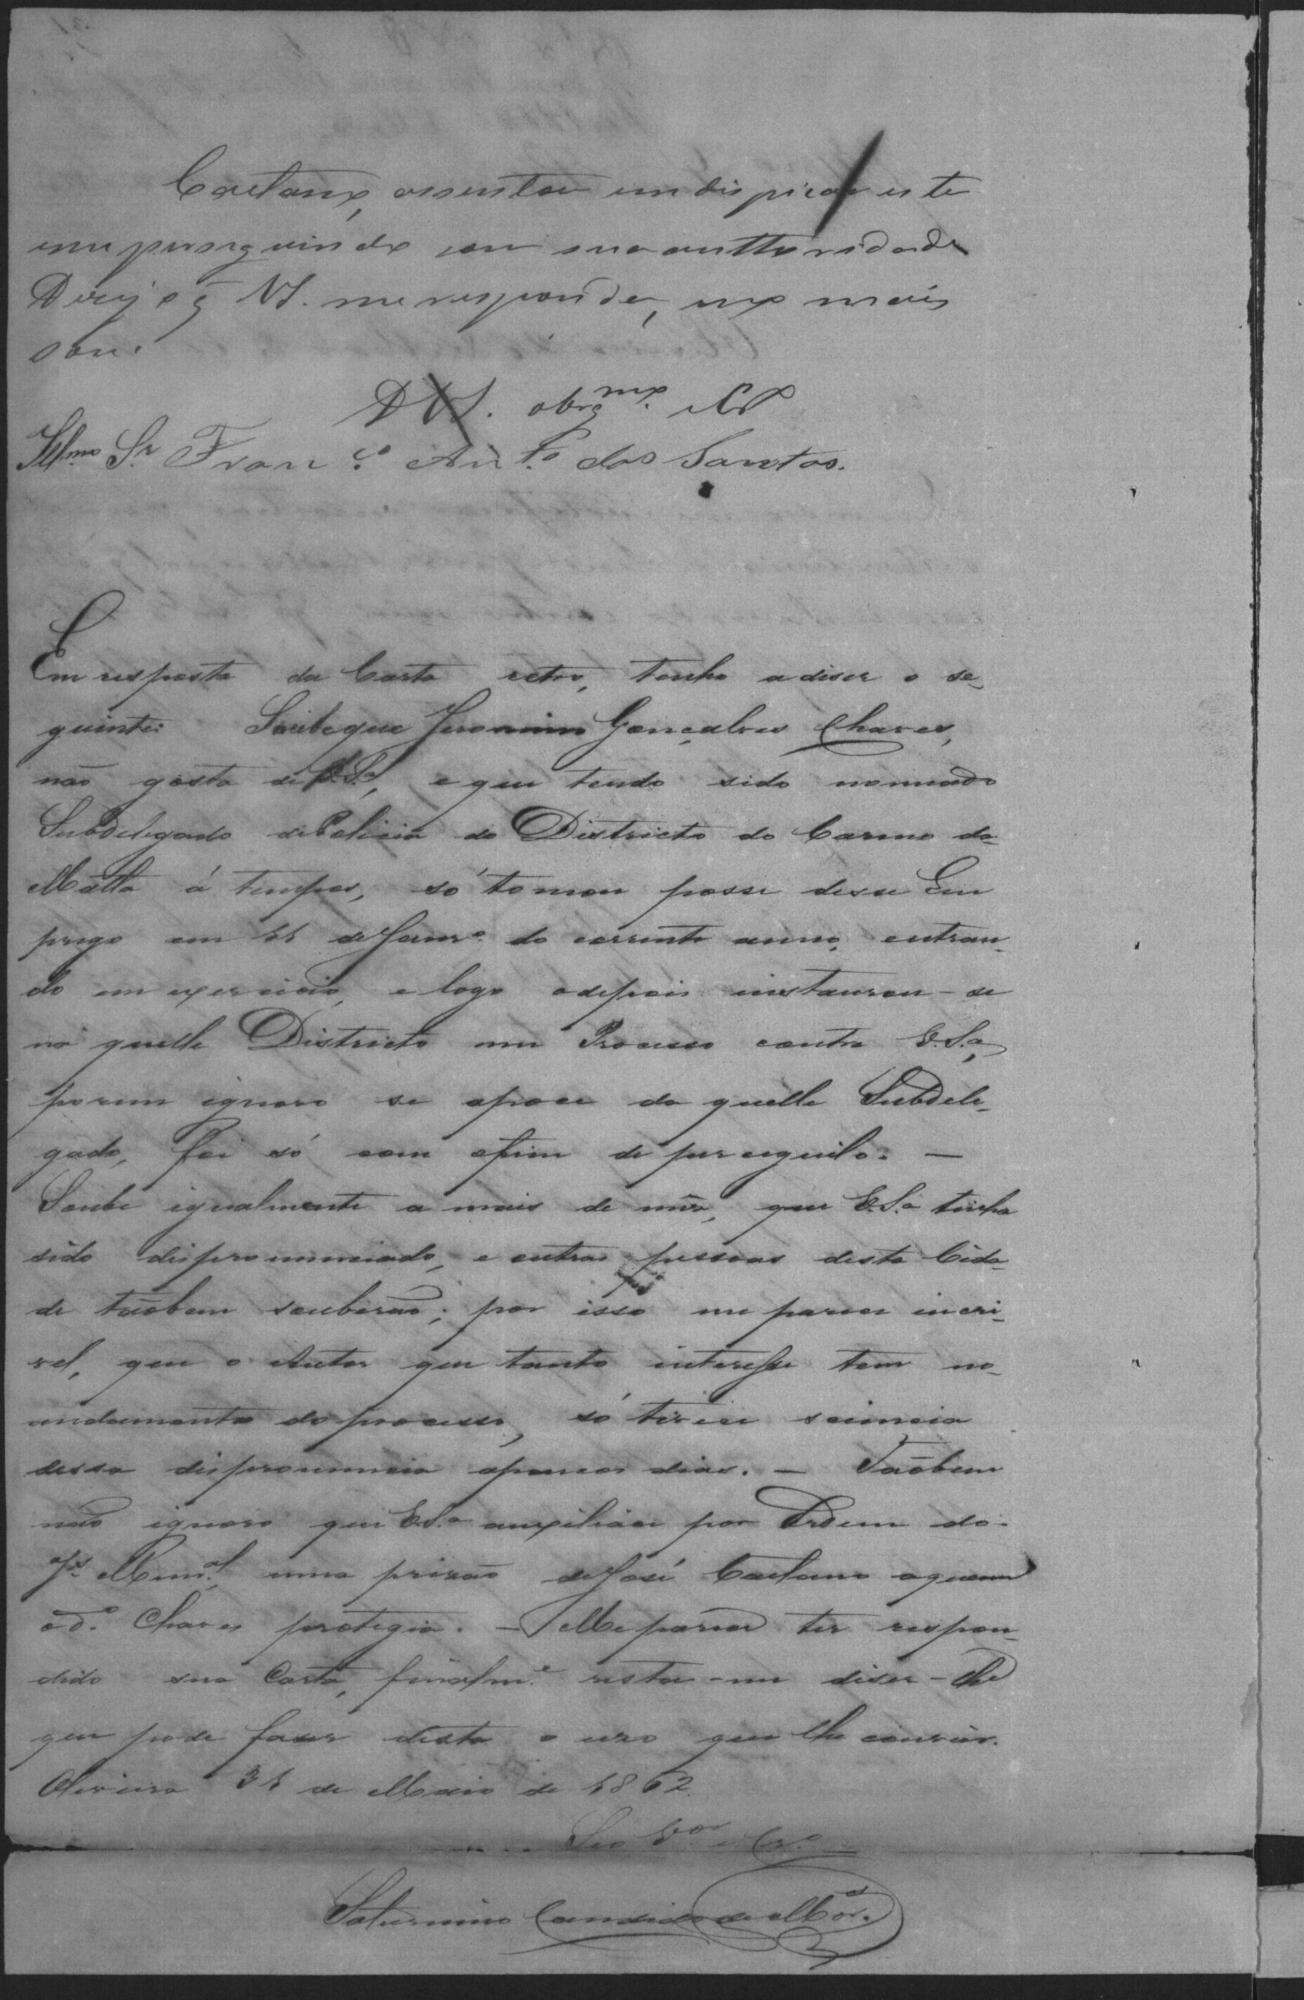 Caetano, assentou em dispicar este
em perseguindo com sua authoridade
Dezejo q̃ VS. me responda, e no mais
sou.
DVS. obrg.mo
Illmo Sr Fran.co Ant.o dos Santos.
Em resposta da Carta retro, tenho a diser o se-
guinte: Soube que Jeronimo Gonçalves Chaves,
não gosta de V.S.a, e que tendo sido nomeado
Subdelegado de Policia do Districto do Carmo da
Matta á tempos, só tomou posse desse Em
prego em 11 de Janro. do corrente anno, entran-
do em exercicio, e logo adepois instaurou-se
na quelle Districto um Processo contra V.S.a,
porem ignoro se aposse da quelle Subdele-
gado, foi só com ofim de perceguilo. —
Soube igualmente a mais de mês, que V.S.a tinha
sido dispronunciado, e outras pessoas desta Cida-
de taobem souberão; por isso me parece incri-
vel, que o Autor que tanto interesse tem no
andamento do processo, só tivece sciencia
dessa dispronuncia apoucos dias. — Taobem
não ignoro que V.S.a auxiliou por Ordem do
Js. Mun.al, uma prizão de José Caetano aquem
o d.o Chaves protegia. — Me parece ter respon-
dido sua Carta, finalm.e resta-me diser-lhe
que pode faser desta o uso que lhe convier.
Oliveira 31 de Maio de 1862.
Seo V.or e Cr.o
Saturnino Candido de Mor.es